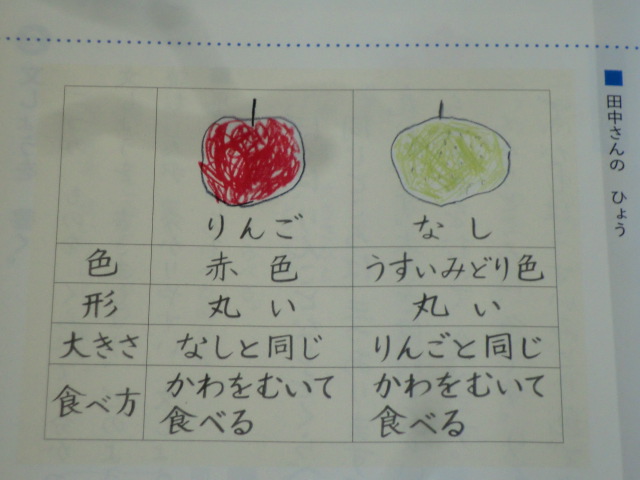 田中さんの ひょう
りんご なし
色 赤色 うすいみどり色
形 丸い 丸い
大きさ なしと同じ りんごと同じ
食べ方 かわをむいて かわをむいて
食べる 食べる